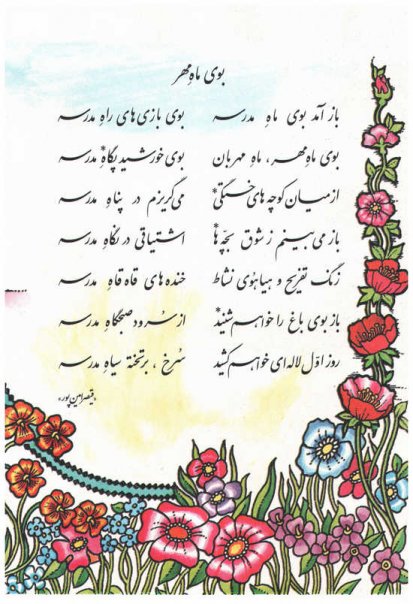 بوی ماهِ مهر
باز آمد بوی ماهِ مدرسه بوی بازی‌های راهِ مدرسه
بوی ماهِ مهر، ماهِ مهربان بوی خورشیدِ پگاهِ* مدرسه
از میان کوچه‌های خستگی* می‌گریزم در پناهِ مدرسه
باز می‌بینم ز شوق بچّه‌ها* اشتیاقی در نگاهِ مدرسه
زنگ تفریح و هیاهوی نشاط خنده‌های قاه قاهِ مدرسه
باز بوی باغ را خواهم شنید* از سرودِ صبحگاهِ مدرسه
روز اوّل لاله‌ای خواهم کشید سُرخ، بر تختهٔ سیاهِ مدرسه
«قیصر امین‌پور»